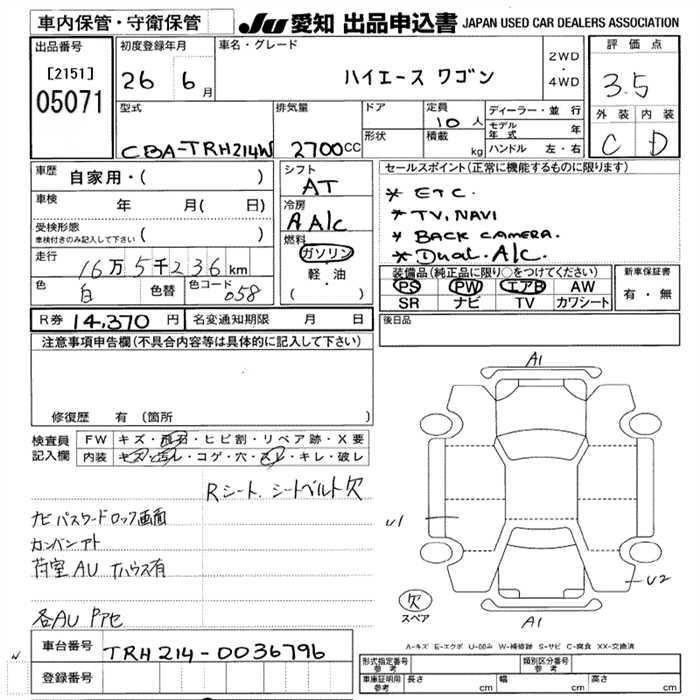 車内保管・守衛保管
JU 愛知 出品申込書 JAPAN USED CAR DEALERS ASSOCIATION
出品番号
[2151]
05071
初度登録年月
26 6月
車名・グレード
ハイエース ワゴン
2WD
・
4WD
評価点
3.5
外装 内装
C D
型式
CBA-TRH214W
排気量
2700CC
ドア
形状
定員
10人
積載
kg
ディーラー・並行
モデル年式 年
ハンドル 左・右
車歴
自家用・( )
車検
年 月( 日)
受検形態
車検付きのみ記入して下さい ( )
走行
16万5千236km
色
白
色替
色コード
058
シフト
AT
冷房
AA/C
燃料
ガソリン
軽・油
( )
セールスポイント(正常に機能するものに限ります)
* ETC.
* TV, NAVI
* BACK CAMERA.
* DUAL. A/C.
装備品(純正品に限り○をつけてください)
PS PW エアB AW
SR ナビ TV カワシート
新車保証書
有・無
R券 14,370 円 名変通知期限 月 日
後日品
注意事項申告欄(不具合内容等は具体的に記入して下さい)
修復歴 有 (箇所 )
検査員記入欄
FW キズ・飛石・ヒビ割・リペア跡・X要
内装 キズ・汚レ・コゲ・穴・スレ・キレ・破レ
Rシート、シートベルト欠
ナビパスワードロック画面
カンバンアト
荷室AU Tハウス有
各AU Pアセ
A1
U1
U2
A1
欠
スペア
A-キズ E-エクボ U-凹み W-補修跡 S-サビ C-腐食 XX-交換済
車台番号 TRH214-0036796
登録番号
型式指定番号 参考
類別区分番号 参考
車庫証明用 参考 長さ cm 幅 cm 高さ cm